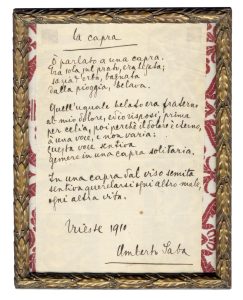 La capra
Ò parlato a una capra.
Era sola sul prato, era legata;
sazia d'erba, bagnata
dalla pioggia, belava.
Quell'uguale belato era fraterno
al mio dolore, ed io risposi, prima
per celia, poi perchè il dolore è eterno,
à una voce, e non varia;
questa voce sentiva
gemere in una capra solitaria.
In una capra dal viso semita
sentiva querelarsi ogni altro male,
ogni altra vita.
Trieste 1910
Umberto Saba